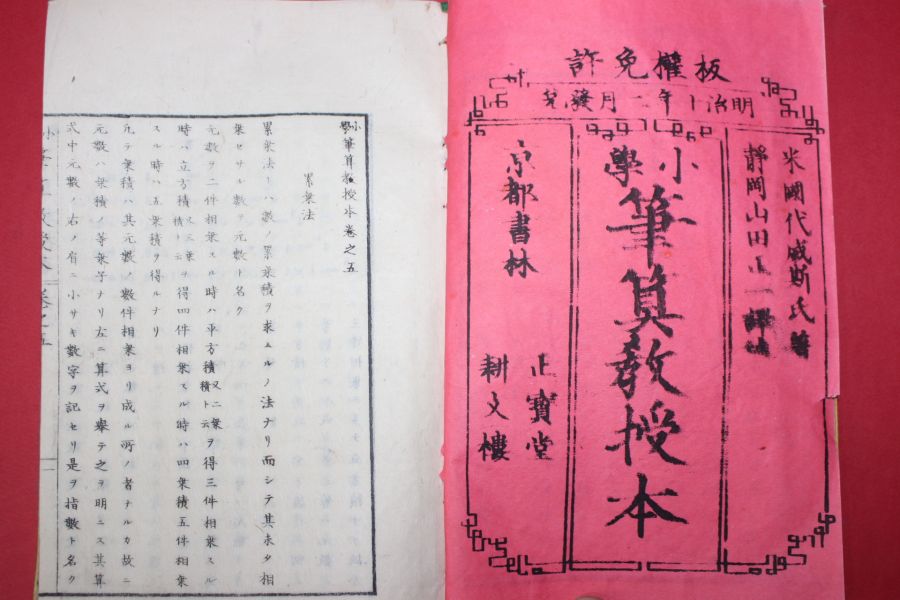 板權免許
明治十年二月發兌
米國代威斯氏著
靜岡山田正一譯編
小學
筆算教授本
京都書林
正寶堂
耕文樓
小學筆算教授本卷之五
累乗法
累乗法トハ數ノ累乗積ヲ求ムルノ法ナリ而シテ其未タ相
乗セサル數ヲ元數ト名ク
元數ヲ二件相乗スル時ハ平方積又二乗積ト云ヲ得三件相乗スル
時ハ立方積又三乗積ト云ヲ得四件相乗スル時ハ四乗積五件相乗
スル時ハ五乗積ヲ得ルナリ
凡テ乗積ハ其元數ノ數件相乗ヨリ成ル所ノ者ナルカ故ニ
元數ハ乗積ノ等乗子ナリ左ニ算式ヲ擧テ之ヲ明ニス其算
式中元數ノ右ノ肩ニ小サキ數字ヲ記セリ是ヲ指數ト名ク